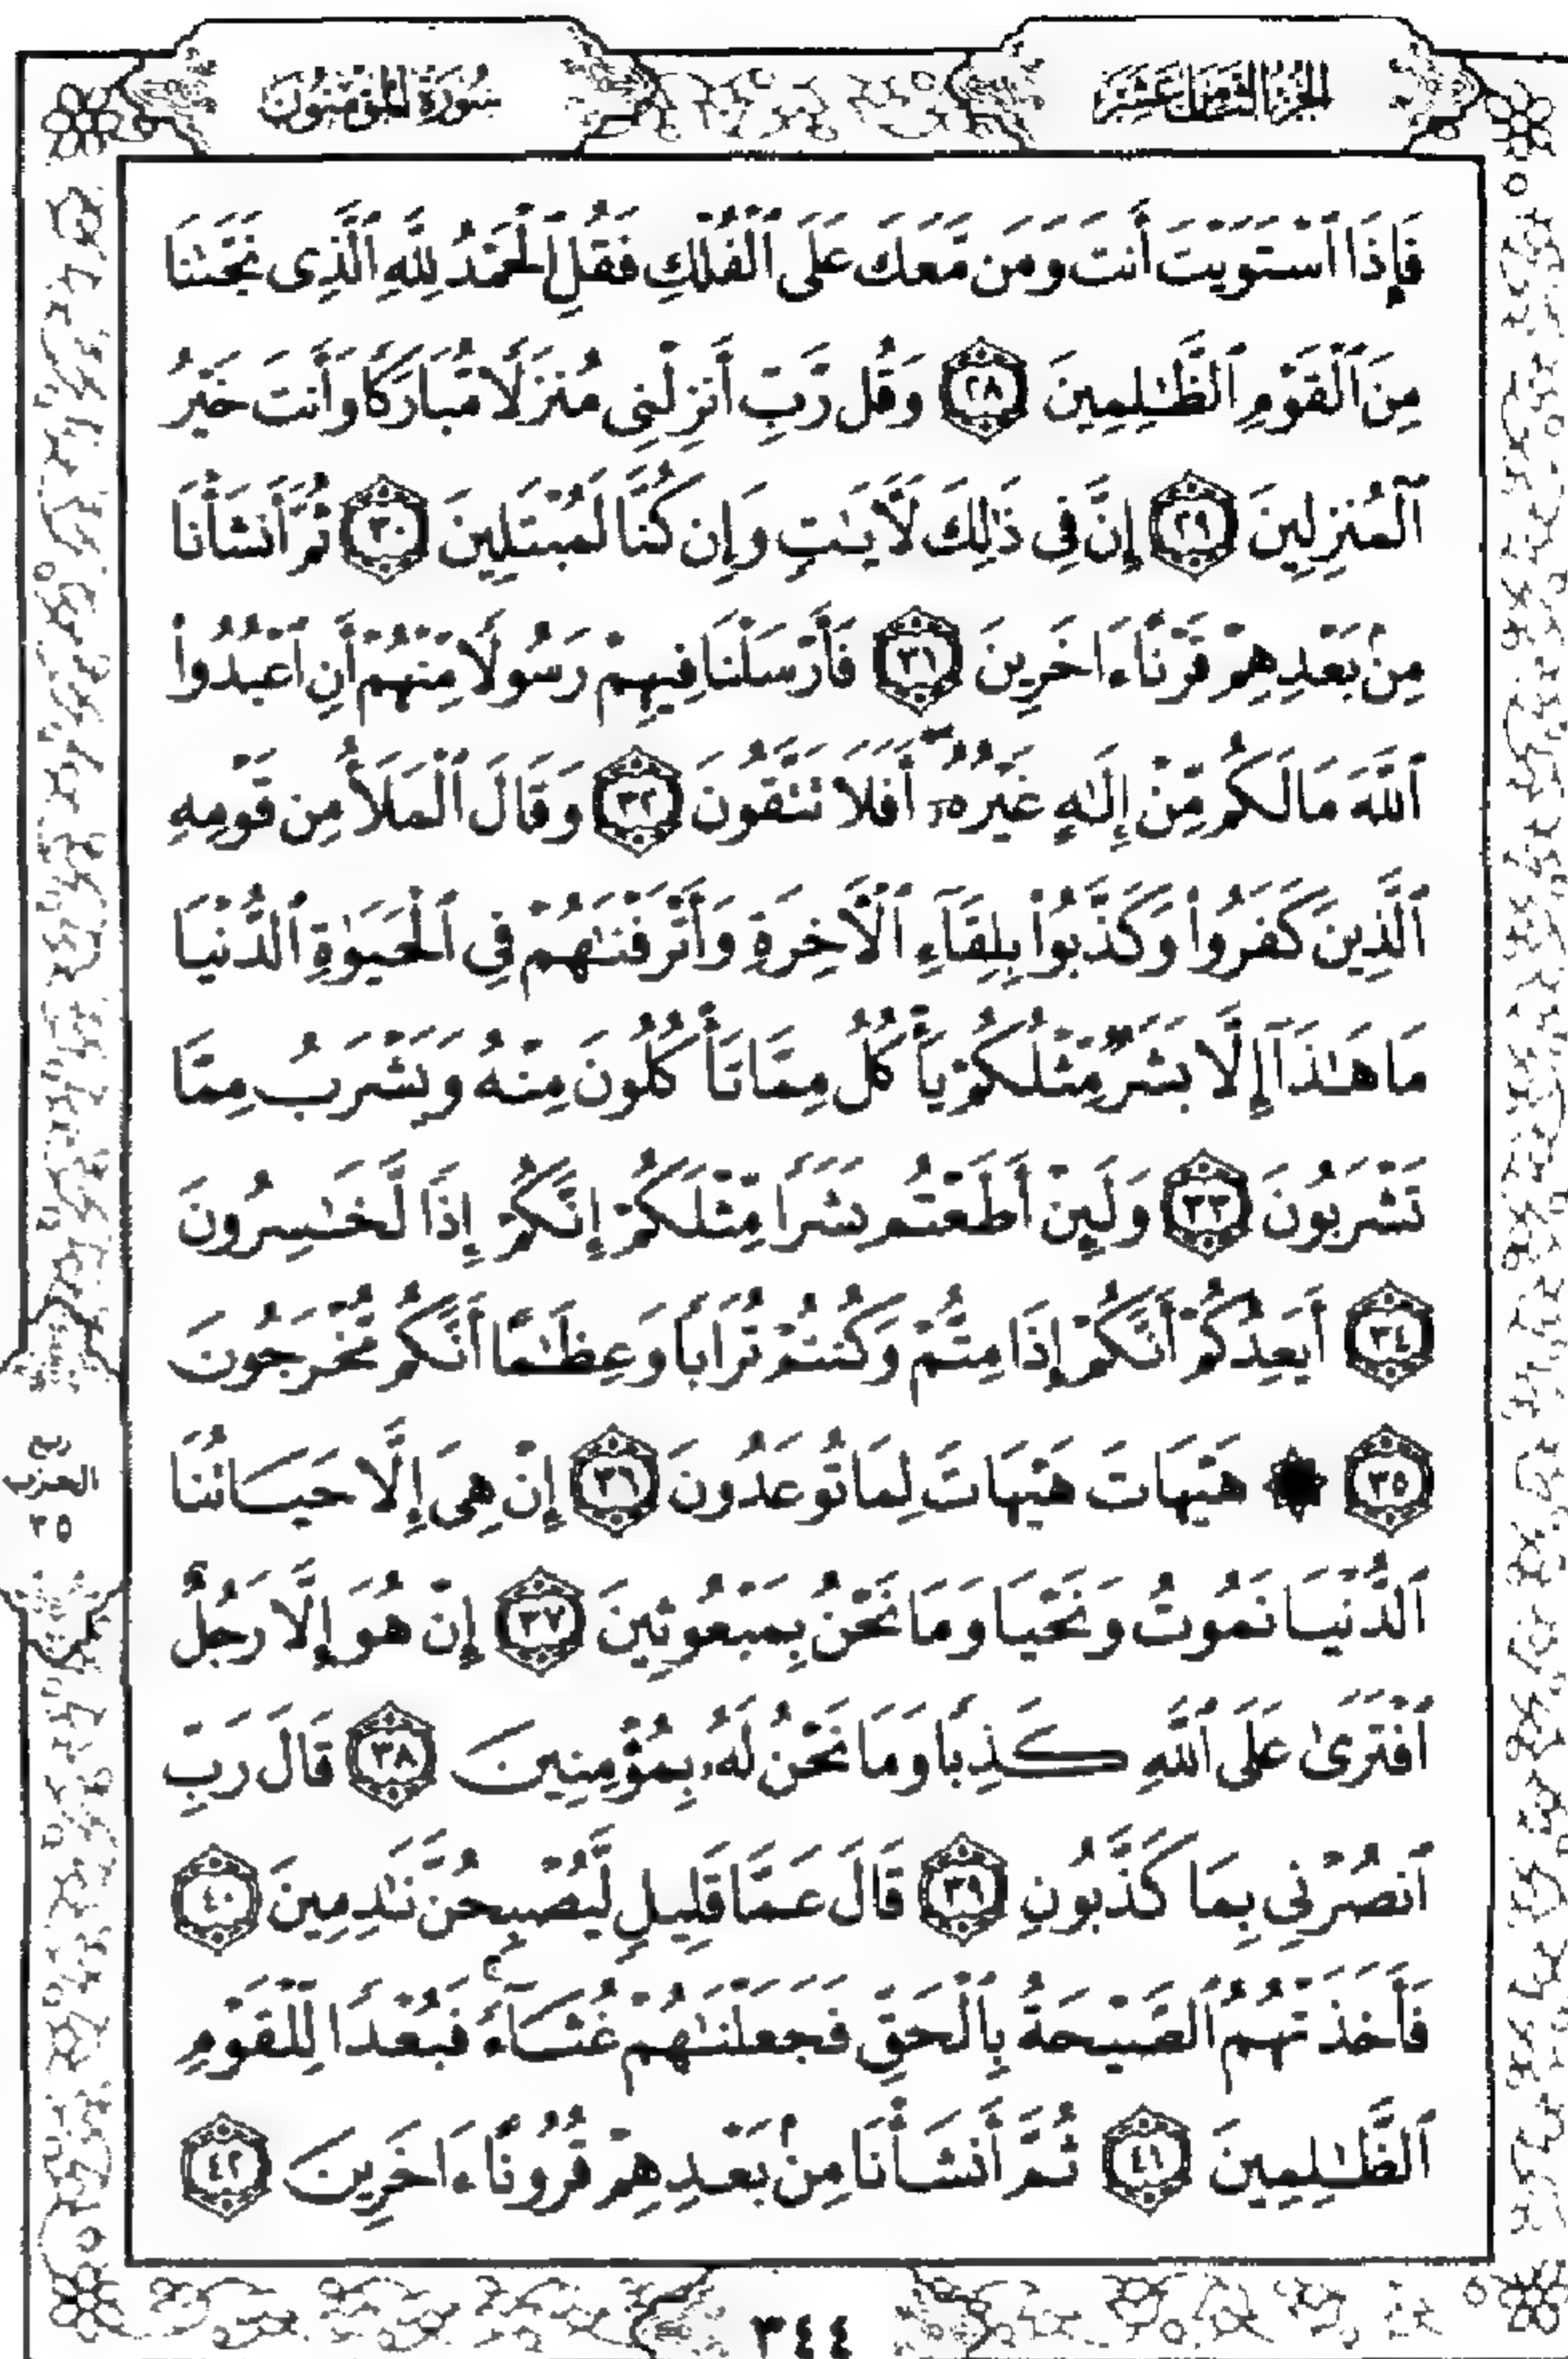 الجزء الثامن عشر
سورة المؤمنون
فَإِذَا ٱسْتَوَيْتَ أَنتَ وَمَن مَّعَكَ عَلَى ٱلْفُلْكِ فَقُلِ ٱلْحَمْدُ لِلَّهِ ٱلَّذِى نَجَّىٰنَا
مِنَ ٱلْقَوْمِ ٱلظَّـٰلِمِينَ ٢٨ وَقُل رَّبِّ أَنزِلْنِى مُنزَلًا مُّبَارَكًا وَأَنتَ خَيْرُ
ٱلْمُنزِلِينَ ٢٩ إِنَّ فِى ذَٰلِكَ لَـَٔايَـٰتٍ وَإِن كُنَّا لَمُبْتَلِينَ ٣٠ ثُمَّ أَنشَأْنَا
مِنۢ بَعْدِهِمْ قَرْنًا ءَاخَرِينَ ٣١ فَأَرْسَلْنَا فِيهِمْ رَسُولًا مِّنْهُمْ أَنِ ٱعْبُدُوا۟
ٱللَّهَ مَا لَكُم مِّنْ إِلَـٰهٍ غَيْرُهُۥٓ أَفَلَا تَتَّقُونَ ٣٢ وَقَالَ ٱلْمَلَأُ مِن قَوْمِهِ
ٱلَّذِينَ كَفَرُوا۟ وَكَذَّبُوا۟ بِلِقَآءِ ٱلْـَٔاخِرَةِ وَأَتْرَفْنَـٰهُمْ فِى ٱلْحَيَوٰةِ ٱلدُّنْيَا
مَا هَـٰذَآ إِلَّا بَشَرٌ مِّثْلُكُمْ يَأْكُلُ مِمَّا تَأْكُلُونَ مِنْهُ وَيَشْرَبُ مِمَّا
تَشْرَبُونَ ٣٣ وَلَئِنْ أَطَعْتُم بَشَرًا مِّثْلَكُمْ إِنَّكُمْ إِذًا لَّخَـٰسِرُونَ
٣٤ أَيَعِدُكُمْ أَنَّكُمْ إِذَا مِتُّمْ وَكُنتُمْ تُرَابًا وَعِظَـٰمًا أَنَّكُم مُّخْرَجُونَ
٣٥ ۞ هَيْهَاتَ هَيْهَاتَ لِمَا تُوعَدُونَ ٣٦ إِنْ هِىَ إِلَّا حَيَاتُنَا
ٱلدُّنْيَا نَمُوتُ وَنَحْيَا وَمَا نَحْنُ بِمَبْعُوثِينَ ٣٧ إِنْ هُوَ إِلَّا رَجُلٌ
ٱفْتَرَىٰ عَلَى ٱللَّهِ كَذِبًا وَمَا نَحْنُ لَهُۥ بِمُؤْمِنِينَ ٣٨ قَالَ رَبِّ
ٱنصُرْنِى بِمَا كَذَّبُونِ ٣٩ قَالَ عَمَّا قَلِيلٍ لَّيُصْبِحُنَّ نَـٰدِمِينَ ٤٠
فَأَخَذَتْهُمُ ٱلصَّيْحَةُ بِٱلْحَقِّ فَجَعَلْنَـٰهُمْ غُثَآءً فَبُعْدًا لِّلْقَوْمِ
ٱلظَّـٰلِمِينَ ٤١ ثُمَّ أَنشَأْنَا مِنۢ بَعْدِهِمْ قُرُونًا ءَاخَرِينَ ٤٢
الحزب
٣٥
٣٤٤